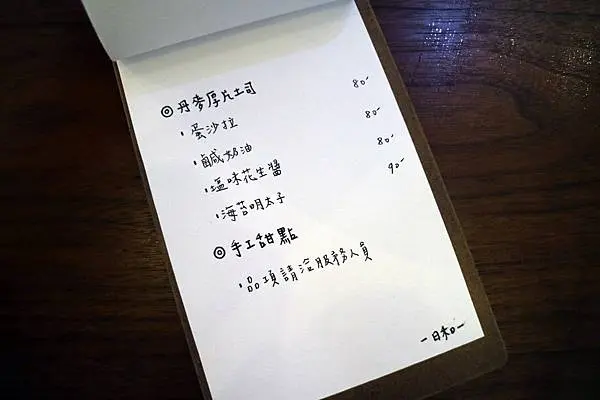 ◎丹麥厚片土司
・蛋沙拉 80-
・鹹奶油 80-
・塩味花生醬 80-
・海苔明太子 90-
◎手工甜點
・品項請洽服務人員
-日和-